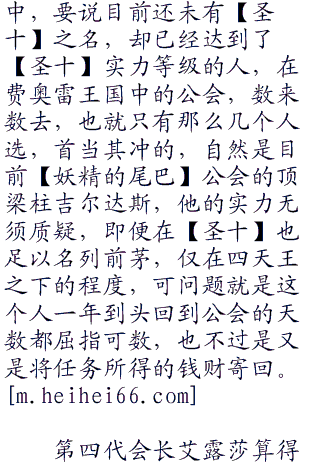 中，要说目前还未有【圣
十】之名，却已经达到了
【圣十】实力等级的人，在
费奥雷王国中的公会，数来
数去，也就只有那么几个人
选，首当其冲的，自然是目
前【妖精的尾巴】公会的顶
梁柱吉尔达斯，他的实力无
须质疑，即便在【圣十】也
足以名列前茅，仅在四天王
之下的程度，可问题就是这
个人一年到头回到公会的天
数都屈指可数，也不过是又
是将任务所得的钱财寄回。
[m.heihei66.com]
第四代会长艾露莎算得